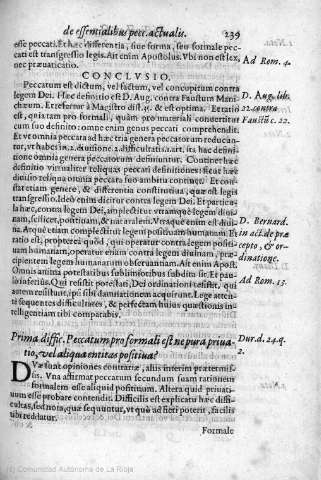 de essentialibus pecc. actualis. 239
esse peccati. Et hæc differentia, siue forma, seu formale pec-
cati est transgressio legis. Ait enim Apostolus. Vbi non est lex,
nec præuaricatio.
Ad Rom. 4.
CONCLVSIO.
Peccatum est dictum, vel factum, vel concupitum contra
legem Dei. Hæc definitio est D. Aug. contra Faustum Mani-
chæum. Et refertur à Magistro dist. & est optima. Etratio
est, quia tam pro formali, quàm pro materiali conuertitur
cum suo definito: omne enim genus peccati comprehendit.
D. Aug. lib.
22. contra
Faustū c. 22.
Et vt omnia peccata ad hæc tria genera peccatorum reducan-
tur, vt habetur in difficultatis art. ita hæc defini-
tione omnia genera peccatorum definiuntur. Continet hæc
definitio virtualiter reliquas peccati definitiones: sicut hæc
diuisio reliqua omnia peccata suo ambitu continet. Et con-
stat etiam genere, & differentia constitutiua, quæ est legis
transgressio. Ideò enim dicitur contra legem Dei. Et particu-
la hæc, contra legem Dei, amplectitur vtramque legem diui-
nam, scilicet, positiuam, & naturalem. Vtraque enim est diui-
na. Atque etiam complectitur legem positiuam humanam. Et
ratio est, propterea quòd, qui operatur contra legem positi-
uam humanam, operatur etiam contra legem diuinam, præ-
cipientem legem humanam non obseruandam. Ait enim Apost.
D. Bernard.
in act. de præ
cepto, & or-
dinatione.
Omnis anima potestatibus sublimioribus subdita sit. Et pau-
lo inferius. Qui resistit potestati, Dei ordinationi resistit, qui
autem resistunt, ipsi sibi damnationem acquirunt. Lege atten-
tè sequentes difficultates, & perfectam huius quæstionis in-
telligentiam tibi comparabis.
Ad Rom. 13.
Prima diffic. Peccatum pro formali est ne pura priua-
tio, vel aliqua entitas positiua?
Dur. d. 24. q.
2.
DVæ sunt opiniones contrariæ, aliis interim prætermis-
sis. Vna affirmat peccatum secundum suam rationem
formalem esse aliquid positiuum. Altera quid priuati-
uum esse probare contendit. Difficilis est explicatu hæc diffi-
cultas, sed nota, quæ sequuntur, vt quò ad fieri poterit, facilis
tibi reddatur.
Formale
(c) Comunidad Autónoma de La Rioja